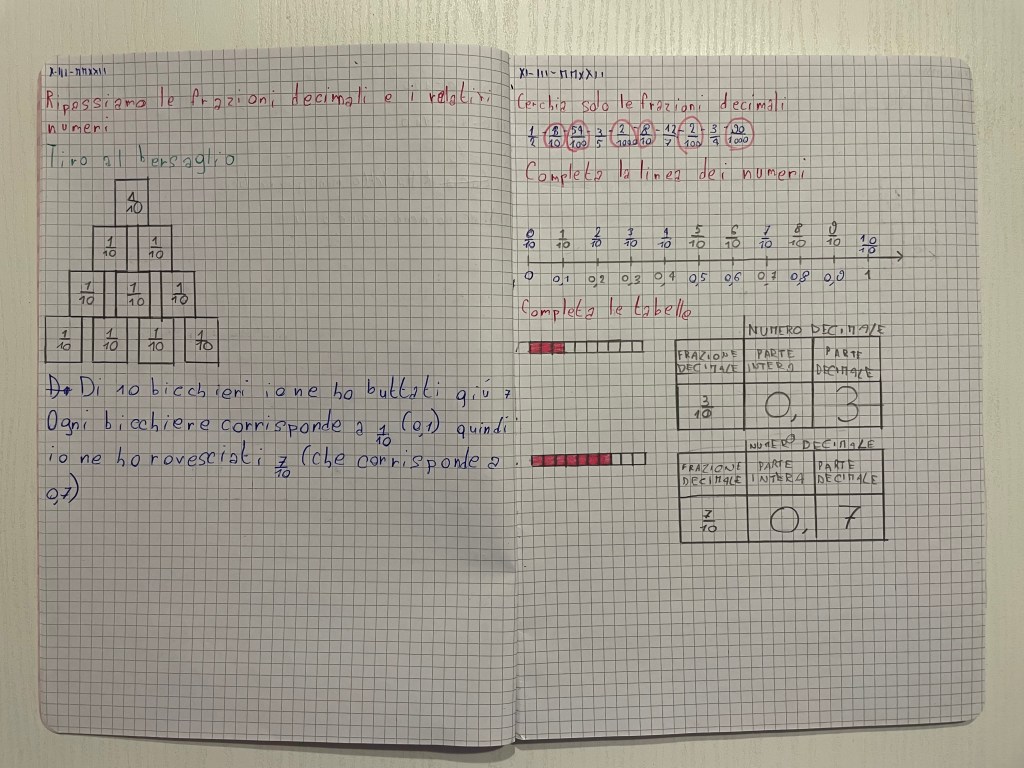 X-III-MMXXII
Ripassiamo le frazioni decimali e i relativi
numeri
Tiro al bersaglio
1/10
1/10 1/10
1/10 1/10 1/10
1/10 1/10 1/10 1/10
Di 10 bicchieri io ne ho buttati giú 7
Ogni bicchiere corrisponde a 1/10 (0,1) quindi
io ne ho rovesciati 7/10 (che corrisponde a
0,7)
XI-III-MMXXII
Cerchia solo le frazioni decimali
1/2 - 8/10 - 54/100 - 3/5 - 2/1000 - 8/10 - 12/7 - 2/100 - 3/4 - 20/1000
Completa la linea dei numeri
0/10 1/10 2/10 3/10 4/10 5/10 6/10 7/10 8/10 9/10 10/10
0 0,1 0,2 0,3 0,4 0,5 0,6 0,7 0,8 0,9 1
Completa le tabelle
NUMERO DECIMALE
FRAZIONE DECIMALE PARTE INTERA PARTE DECIMALE
3/10 0, 3
NUMERO DECIMALE
FRAZIONE DECIMALE PARTE INTERA PARTE DECIMALE
7/10 0, 7